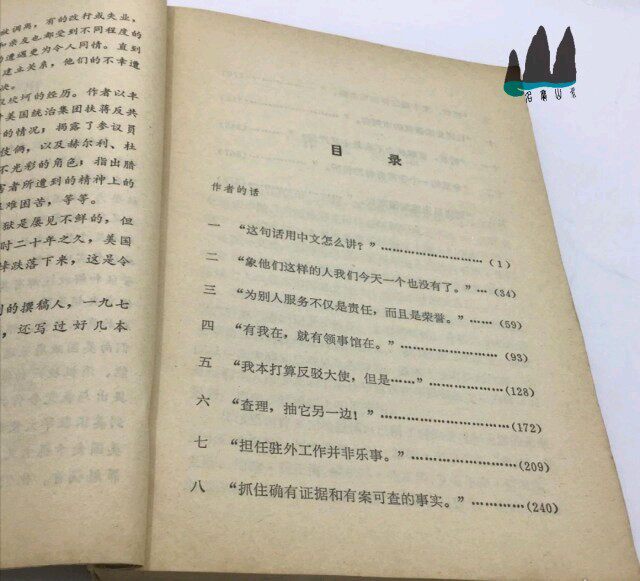 被调离，有的改行或失业，
和亲友也都受到不同程度的
的遭遇更为令人同情。直到
建立关系，他们的不幸遭
决。
坎坷的经历。作者以丰
美国统治集团扶蒋反共
的情况；揭露了参议员
伎俩，以及赫尔利、杜
不光彩的角色；指出腊
害者所遭到的精神上的
难困苦，等等。
狱是屡见不鲜的，但
时二十年之久，美国
掉跌落下来，这是令
的撰稿人，一九七
，还写过好几本
目 录
作者的话
一 “这句话用中文怎么讲？”………………（1）
二 “象他们这样的人我们今天一个也没有了。”…（34）
三 “为别人服务不仅是责任，而且是荣誉。”……（59）
四 “有我在，就有领事馆在。”………………（93）
五 “我本打算反驳大使，但是……”……………（128）
六 “查理，抽它另一边！”………………（172）
七 “担任驻外工作并非乐事。”………………（209）
八 “抓住确有证据和有案可查的事实。”…………（240）